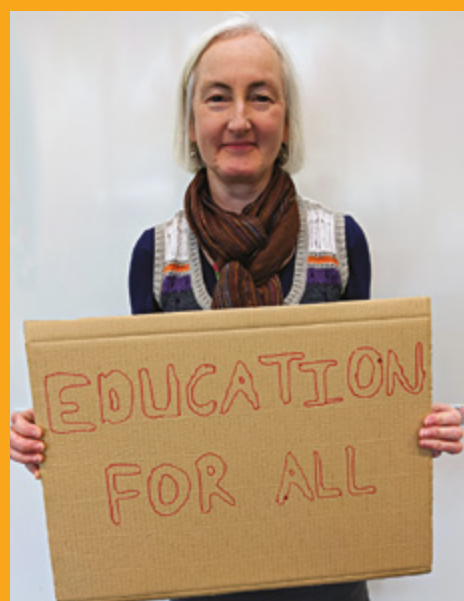 EDUCATION
FOR ALL